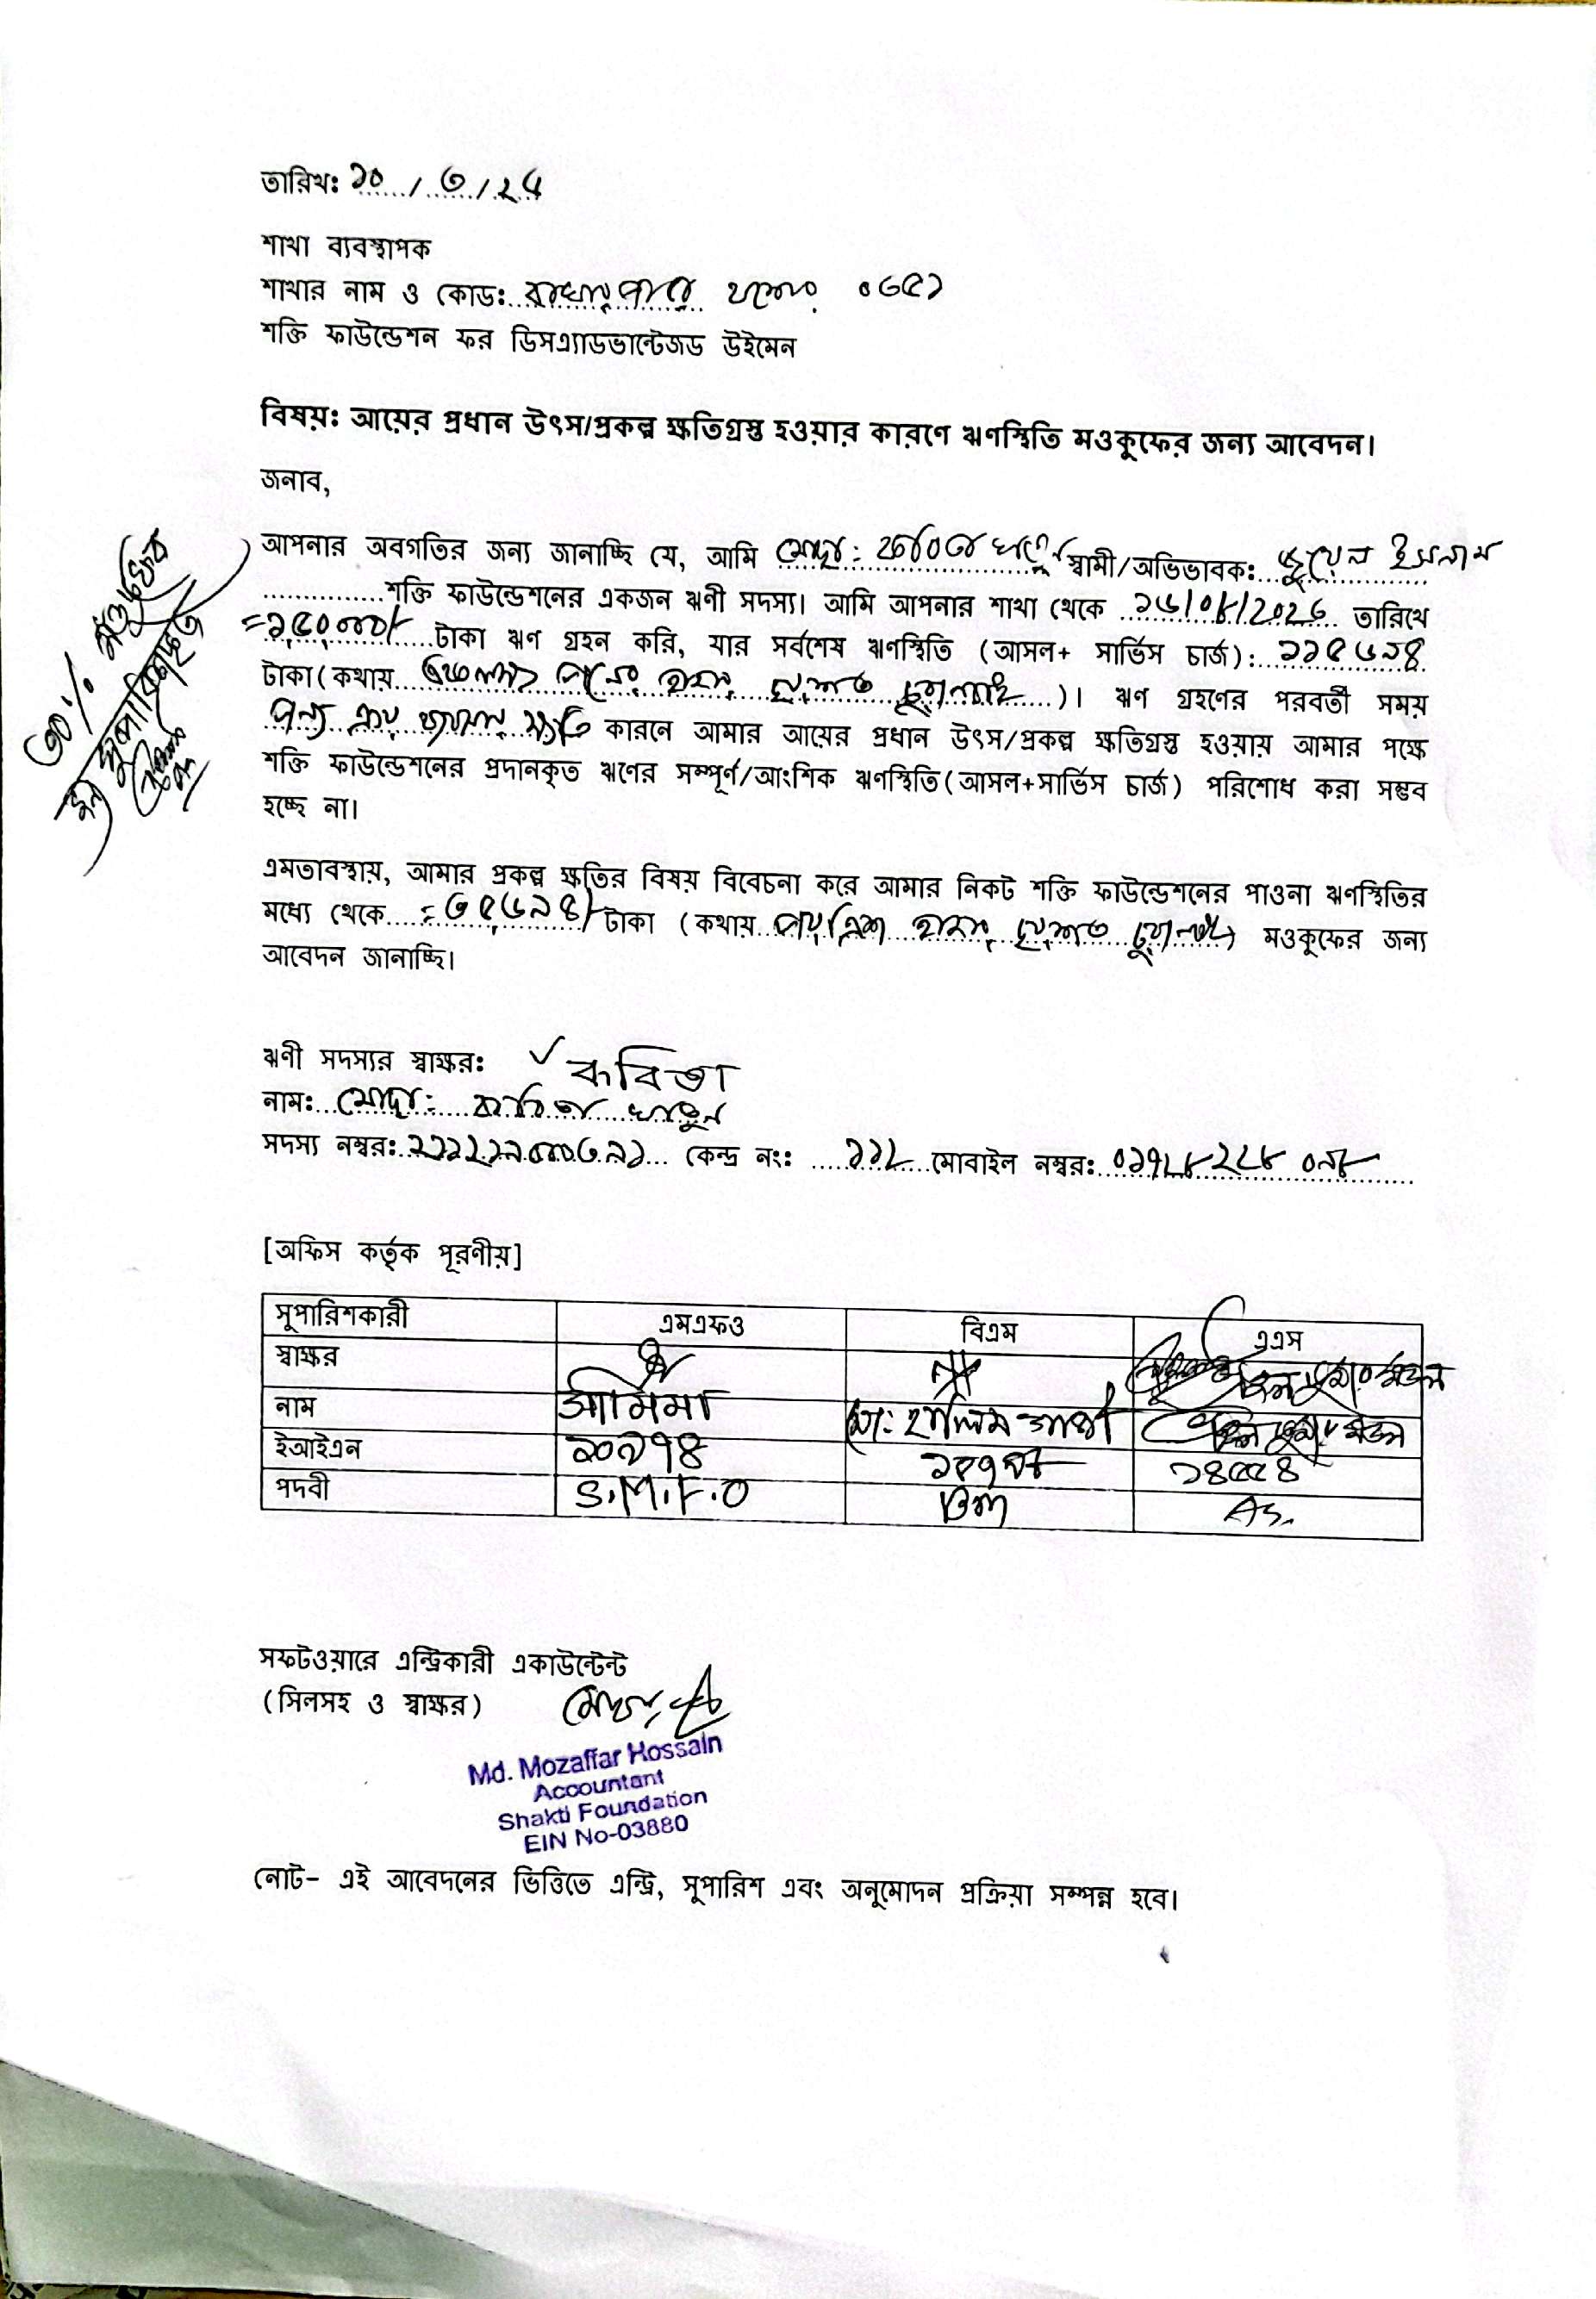 তারিখঃ ১০ / ৩ / ২৫
শাখা ব্যবস্থাপক
শাখার নাম ও কোডঃ যশোর ০৩৫১
শক্তি ফাউন্ডেশন ফর ডিসএ্যাডভান্টেজড উইমেন
বিষয়ঃ আয়ের প্রধান উৎস/প্রকল্প ক্ষতিগ্রস্ত হওয়ার কারণে ঋণস্থিতি মওকুফের জন্য আবেদন।
জনাব,
আপনার অবগতির জন্য জানাচ্ছি যে, আমি মোছাঃ কবিতা খাতুন স্বামী/অভিভাবকঃ জুয়েল ইসলাম
শক্তি ফাউন্ডেশনের একজন ঋণী সদস্য। আমি আপনার শাখা থেকে তারিখে
=১,৫০,০০০/- টাকা ঋণ গ্রহন করি, যার সর্বশেষ ঋণস্থিতি (আসল+ সার্ভিস চার্জ): ১১৫৬৯৪
টাকা(কথায় একলক্ষ পনের হাজার ছয়শত চুরানব্বই)। ঋণ গ্রহণের পরবর্তী সময়
কারনে আমার আয়ের প্রধান উৎস/প্রকল্প ক্ষতিগ্রস্ত হওয়ায় আমার পক্ষে
শক্তি ফাউন্ডেশনের প্রদানকৃত ঋণের সম্পূর্ণ/আংশিক ঋণস্থিতি(আসল+সার্ভিস চার্জ) পরিশোধ করা সম্ভব
হচ্ছে না।
৩০% মওকুফের
জন্য সুপারিশকৃত
এমতাবস্থায়, আমার প্রকল্প ক্ষতির বিষয় বিবেচনা করে আমার নিকট শক্তি ফাউন্ডেশনের পাওনা ঋণস্থিতির
মধ্যে থেকে =৩৫,৬৯৪/- টাকা (কথায় পয়ত্রিশ হাজার ছয়শত চুরানব্বই) মওকুফের জন্য
আবেদন জানাচ্ছি।
ঋণী সদস্যর স্বাক্ষরঃ কবিতা
নামঃ মোছাঃ কবিতা খাতুন
সদস্য নম্বরঃ কেন্দ্র নংঃ ১১৮ মোবাইল নম্বরঃ
[অফিস কর্তৃক পূরণীয়]
সুপারিশকারী এমএফও বিএম এএস
স্বাক্ষর
নাম আমিমা মোঃ হালিম গাজী
ইআইএন ২০২৭৪ ১৪৫৫৪
পদবী S.M.F.O BM AS.
সফটওয়ারে এন্ট্রিকারী একাউন্টেন্ট
(সিলসহ ও স্বাক্ষর)
Md. Mozaffar Hossain
Accountant
Shakti Foundation
EIN No-03880
নোট- এই আবেদনের ভিত্তিতে এন্ট্রি, সুপারিশ এবং অনুমোদন প্রক্রিয়া সম্পন্ন হবে।